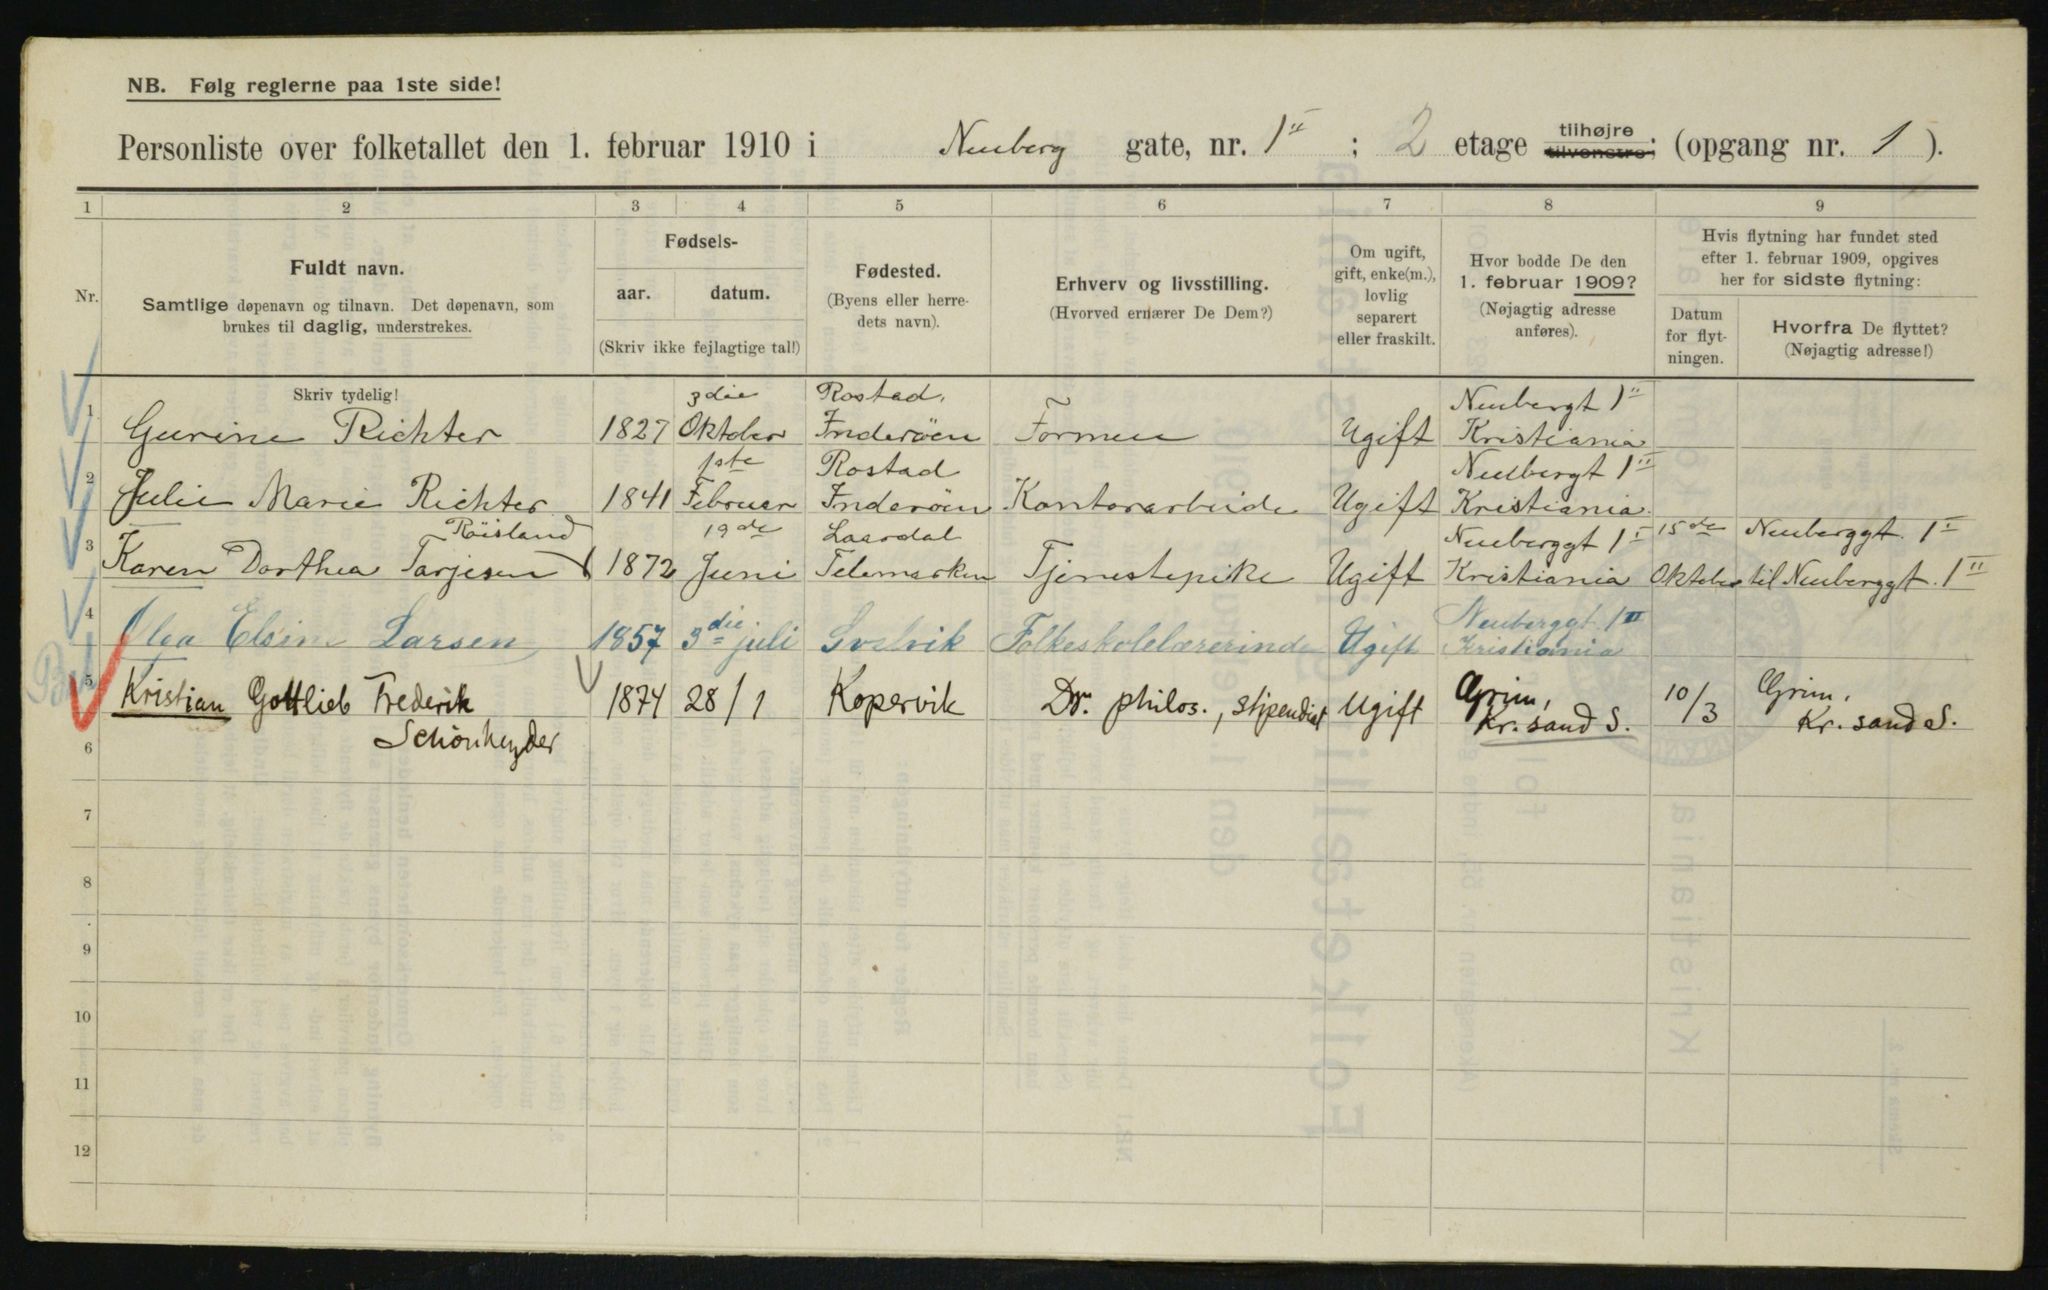 NB. Følg reglerne paa 1ste side!
Personliste over folketallet den 1. februar 1910 i Neuberg gate, nr. 1II ; 2 etage tilhøjre tilvenstre; (opgang nr. 1 ).
1 2 3 4 5 6 7 8 9
Nr.
Fuldt navn.
Samtlige døpenavn og tilnavn. Det døpenavn, som
brukes til daglig, understrekes.
Skriv tydelig!
Fødsels-
aar. datum.
(Skriv ikke fejlagtige tal!)
Fødested.
(Byens eller herre-
dets navn).
Erhverv og livsstilling.
(Hvorved ernærer De Dem?)
Om ugift,
gift, enke(m.),
lovlig
separert
eller fraskilt.
Hvor bodde De den
1. februar 1909?
(Nøjagtig adresse
anføres).
Hvis flytning har fundet sted
efter 1. februar 1909, opgives
her for sidste flytning:
Datum
for flyt-
ningen.
Hvorfra De flyttet?
(Nøjagtig adresse!)
3die Rostad, Neubergt 1II
1 Gurine Richter 1827 Oktober Inderøen Formue Ugift Kristiania
1ste Rostad Neubergt 1II
2 Julie Marie Richter 1841 Februar Inderøen Kontorarbeide Ugift Kristiania
Røisland 19de Laardal Neuberggt 1I 15de Neuberggt. 1I
3 Karen Dorthea Tarjesen 1872 Juni Telemarken Tjenestepike Ugift Kristiania Oktober til Neuberggt. 1II
Neuberggt. 1II
4 Olga Elsine Larsen 1857 3die juli Svelvik Folkeskolelærerinde Ugift Kristiania
5 Kristian Gottlieb Frederik 1874 28/1 Kopervik Dr. philos., stipendiat Ugift Grim, 10/3 Grim,
Schönheyder Kr. sand S. Kr. sand S.
6
7
8
9
10
11
12